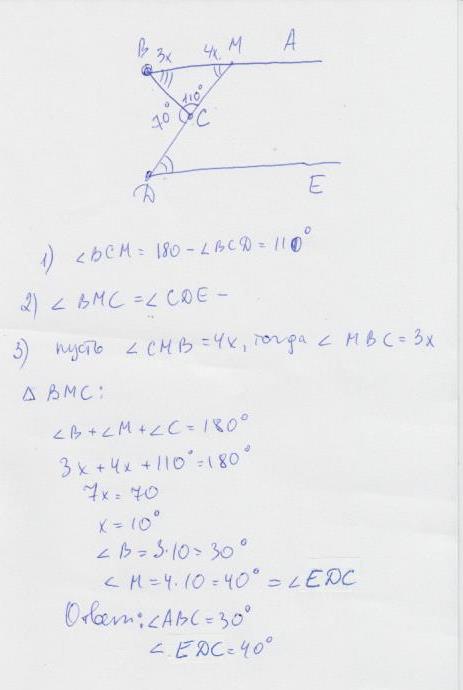 B 3x 4x M A
110°
70° C
D E
1) ∠BCM = 180 - ∠BCD = 110°
2) ∠ BMC = ∠ CDE -
3) пусть ∠ CMB = 4x, тогда ∠ MBC = 3x
Δ BMC:
∠B + ∠M + ∠C = 180°
3x + 4x + 110° = 180°
7x = 70
x = 10°
∠ B = 3·10 = 30°
∠ M = 4·10 = 40° = ∠EDC
Ответ: ∠ABC = 30°
∠ EDC = 40°